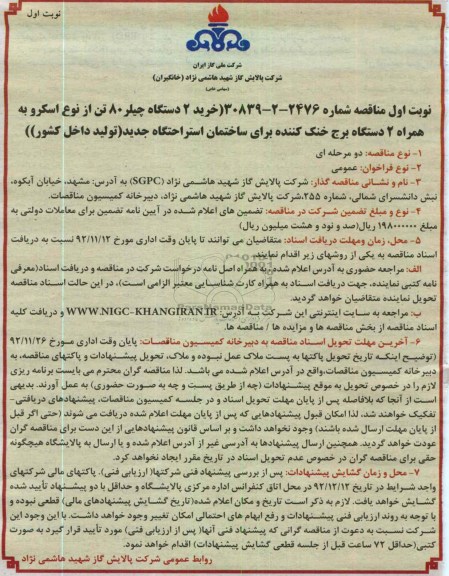 نوبت اول
شرکت ملی گاز ایران
شرکت پالایش گاز شهید هاشمی نژاد (خانگیران)
(سهامی خاص)
نوبت اول مناقصه شماره ۲۴۷۶-۲-۳۰۸۳۹(خرید ۲ دستگاه چیلر۸۰ تن از نوع اسکرو به
همراه ۲ دستگاه برج خنک کننده برای ساختمان استراحتگاه جدید(تولید داخل کشور))
۱- نوع مناقصه: دو مرحله ای
۲- نوع فراخوان: عمومی
۳- نام و نشـانی مناقصه گذار: شرکت پالایش گاز شهید هاشـمی نژاد (SGPC) به آدرس: مشهد، خیابان آبکوه،
نبش دانشسرای شمالی، شماره ۲۵۵،شرکت پالایش گاز شهید هاشمی نژاد، دبیرخانه کمیسیون مناقصات.
۴- نوع و مبلغ تضمین شـرکت در مناقصه: تضمین های اعلام شـده در آیین نامه تضمین برای معاملات دولتی به
مبلغ ۱۹۸۰۰۰۰۰۰ ریال(صد و نود و هشت میلیون ریال)
۵- محل، زمان ومهلت دریافت اسناد: متقاضیان می توانند تا پایان وقت اداری مورخ ۹۲/۱۱/۱۲ نسبت به دریافت
اسناد مناقصه به یکی از روشهای زیر اقدام نمایند.
الف: مراجعه حضوری به آدرس اعلام شده ، به همراه اصل نامه درخواست شرکت در مناقصه و دریافت اسناد(معرفی
نامه کتبی نماینده، جهت دریافت اسـناد به همراه کارت شناسـایی معتبر الزامی است)، در این حالت اسـناد مناقصه
تحویل نماینده متقاضیان خواهد گردید.
ب: مراجعه به سـایت اینترنتی این شـرکت بـه آدرس WWW.NIGC-KHANGIRAN.IR و دریافت کلیه
اسناد مناقصه از بخش مناقصه ها و مزایده ها / مناقصه ها.
۶- آخریـن مهلت تحویل اسـناد مناقصه به دبیرخانه کمیسیون مناقصـات: پایان وقت اداری مـورخ ۹۲/۱۱/۲۶
(توضیـح اینکـه تاریخ تحویل پاکتها به پسـت ملاک عمل نبـوده و ملاک، تحویل پیشـنهادات و پاکتهای مناقصه، به
دبیرخانه کمیسیون مناقصات،واقع در آدرس اعلام شـده می باشـد. لذا مناقصه گران محترم می بایست برنامه ریزی
لازم را در خصوص تحویل به موقع پیشنهادات (چه از طریق پسـت و چه به صورت حضوری) به عمل آورند. بدیهی
است از آنجا که بلافاصله پس از پایان مهلت تحویل اسناد و در جلسـه کمیسیون مناقصات، پیشنهادهای دریافتی-
تفکیک خواهند شد، لذا امکان قبول پیشنهادهایی که پس از پایان مهلت اعلام شده دریافت می شوند (حتی اگر قبل
از پایان مهلت ارسال شده باشند) وجود نخواهد داشت و بر اساس قانون پیشنهادهایی از این دست برای مناقصه گران
عودت خواهد گردید. همچنین ارسال پیشنهادها به آدرسی غیر از آدرس اعلام شده و یا ارسال به پالایشگاه هیچگونه
حقی برای مناقصه گران در خصوص عدم تحویل اسناد در تاریخ مقرر ایجاد نخواهد کرد.
۷- محل و زمان گشایش پیشنهادات: پس از بررسی پیشنهاد فنی شرکتها( ارزیابی فنی)، پاکتهای مالی شرکتهای
واجد شـرایط در تاریخ ۹۲/۱۲/۱۲ در محل اتاق کنفرانس اداره مرکزی پالایشـگاه و حداقل با دو پیشنهاد تأیید شده
گشـایش خواهد یافت. لازم به ذکر است تاریخ و مکان اعلام شده(تاریخ گشـایش پیشنهادهای مالی) قطعی نبوده و
با توجه به روند ارزیابی فنی پیشنهادات و رفع ابهام های احتمالی امکان تغییر وجود خواهد داشـت. با این وجود این
شـرکت نسـبت به دعوت از مناقصه گرانی که پیشنهاد فنی آنها( پس از ارزیابی فنی) مورد تأیید قرار گیرد به صورت
کتبی(حداقل ۷۲ ساعت قبل از جلسه قطعی گشایش پیشنهادات) اقدام خواهد نمود.
روابط عمومی شرکت پالایش گاز شهید هاشمی نژاد